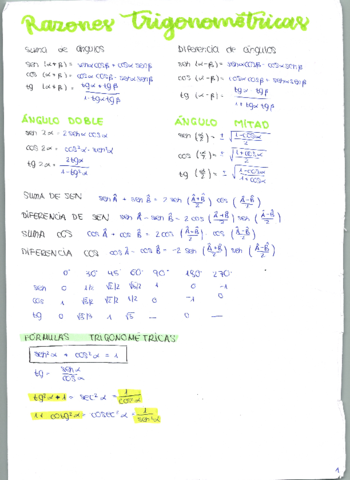 Razones Trigonométricas
Suma de ángulos
sen (α+β) = senα cosβ + cosα senβ
cos (α+β) = cosα cosβ - senα senβ
tg (α+β) = tgα + tgβ / 1 - tgα tgβ
Diferencia de ángulos
sen (α-β) = senα cosβ - cosα senβ
cos (α-β) = cosα cosβ + senα senβ
tg (α-β) = tgα - tgβ / 1 + tgα tgβ
ÁNGULO DOBLE
sen 2α = 2 senα cosα
cos 2α = cos²α - sen²α
tg 2α = 2tgα / 1 - tg²α
ÁNGULO MITAD
sen (α/2) = ± √(1 - cosα / 2)
cos (α/2) = ± √(1 + cosα / 2)
tg (α/2) = ± √(1 - cosα / 1 + cosα)
SUMA DE SEN sen Â + sen B̂ = 2 sen (Â+B̂ / 2) cos (Â-B̂ / 2)
DIFERENCIA DE SEN sen Â - sen B̂ = 2 cos (Â+B̂ / 2) sen (Â-B̂ / 2)
SUMA COS cos Â + cos B̂ = 2 cos (Â+B̂ / 2) cos (Â-B̂ / 2)
DIFERENCIA COS cos Â - cos B̂ = -2 sen (Â+B̂ / 2) sen (Â-B̂ / 2)
0° 30° 45° 60° 90° 180° 270°
sen 0 1/2 √2/2 √3/2 1 0 -1
cos 1 √3/2 √2/2 1/2 0 -1 0
tg 0 √3/3 1 √3 — 0 —
FÓRMULAS TRIGONOMÉTRICAS
sen²α + cos²α = 1
tg = senα / cosα
tg²α + 1 = sec²α = 1 / cos²α
1 + cotg²α = cosec²α = 1 / sen²α
1